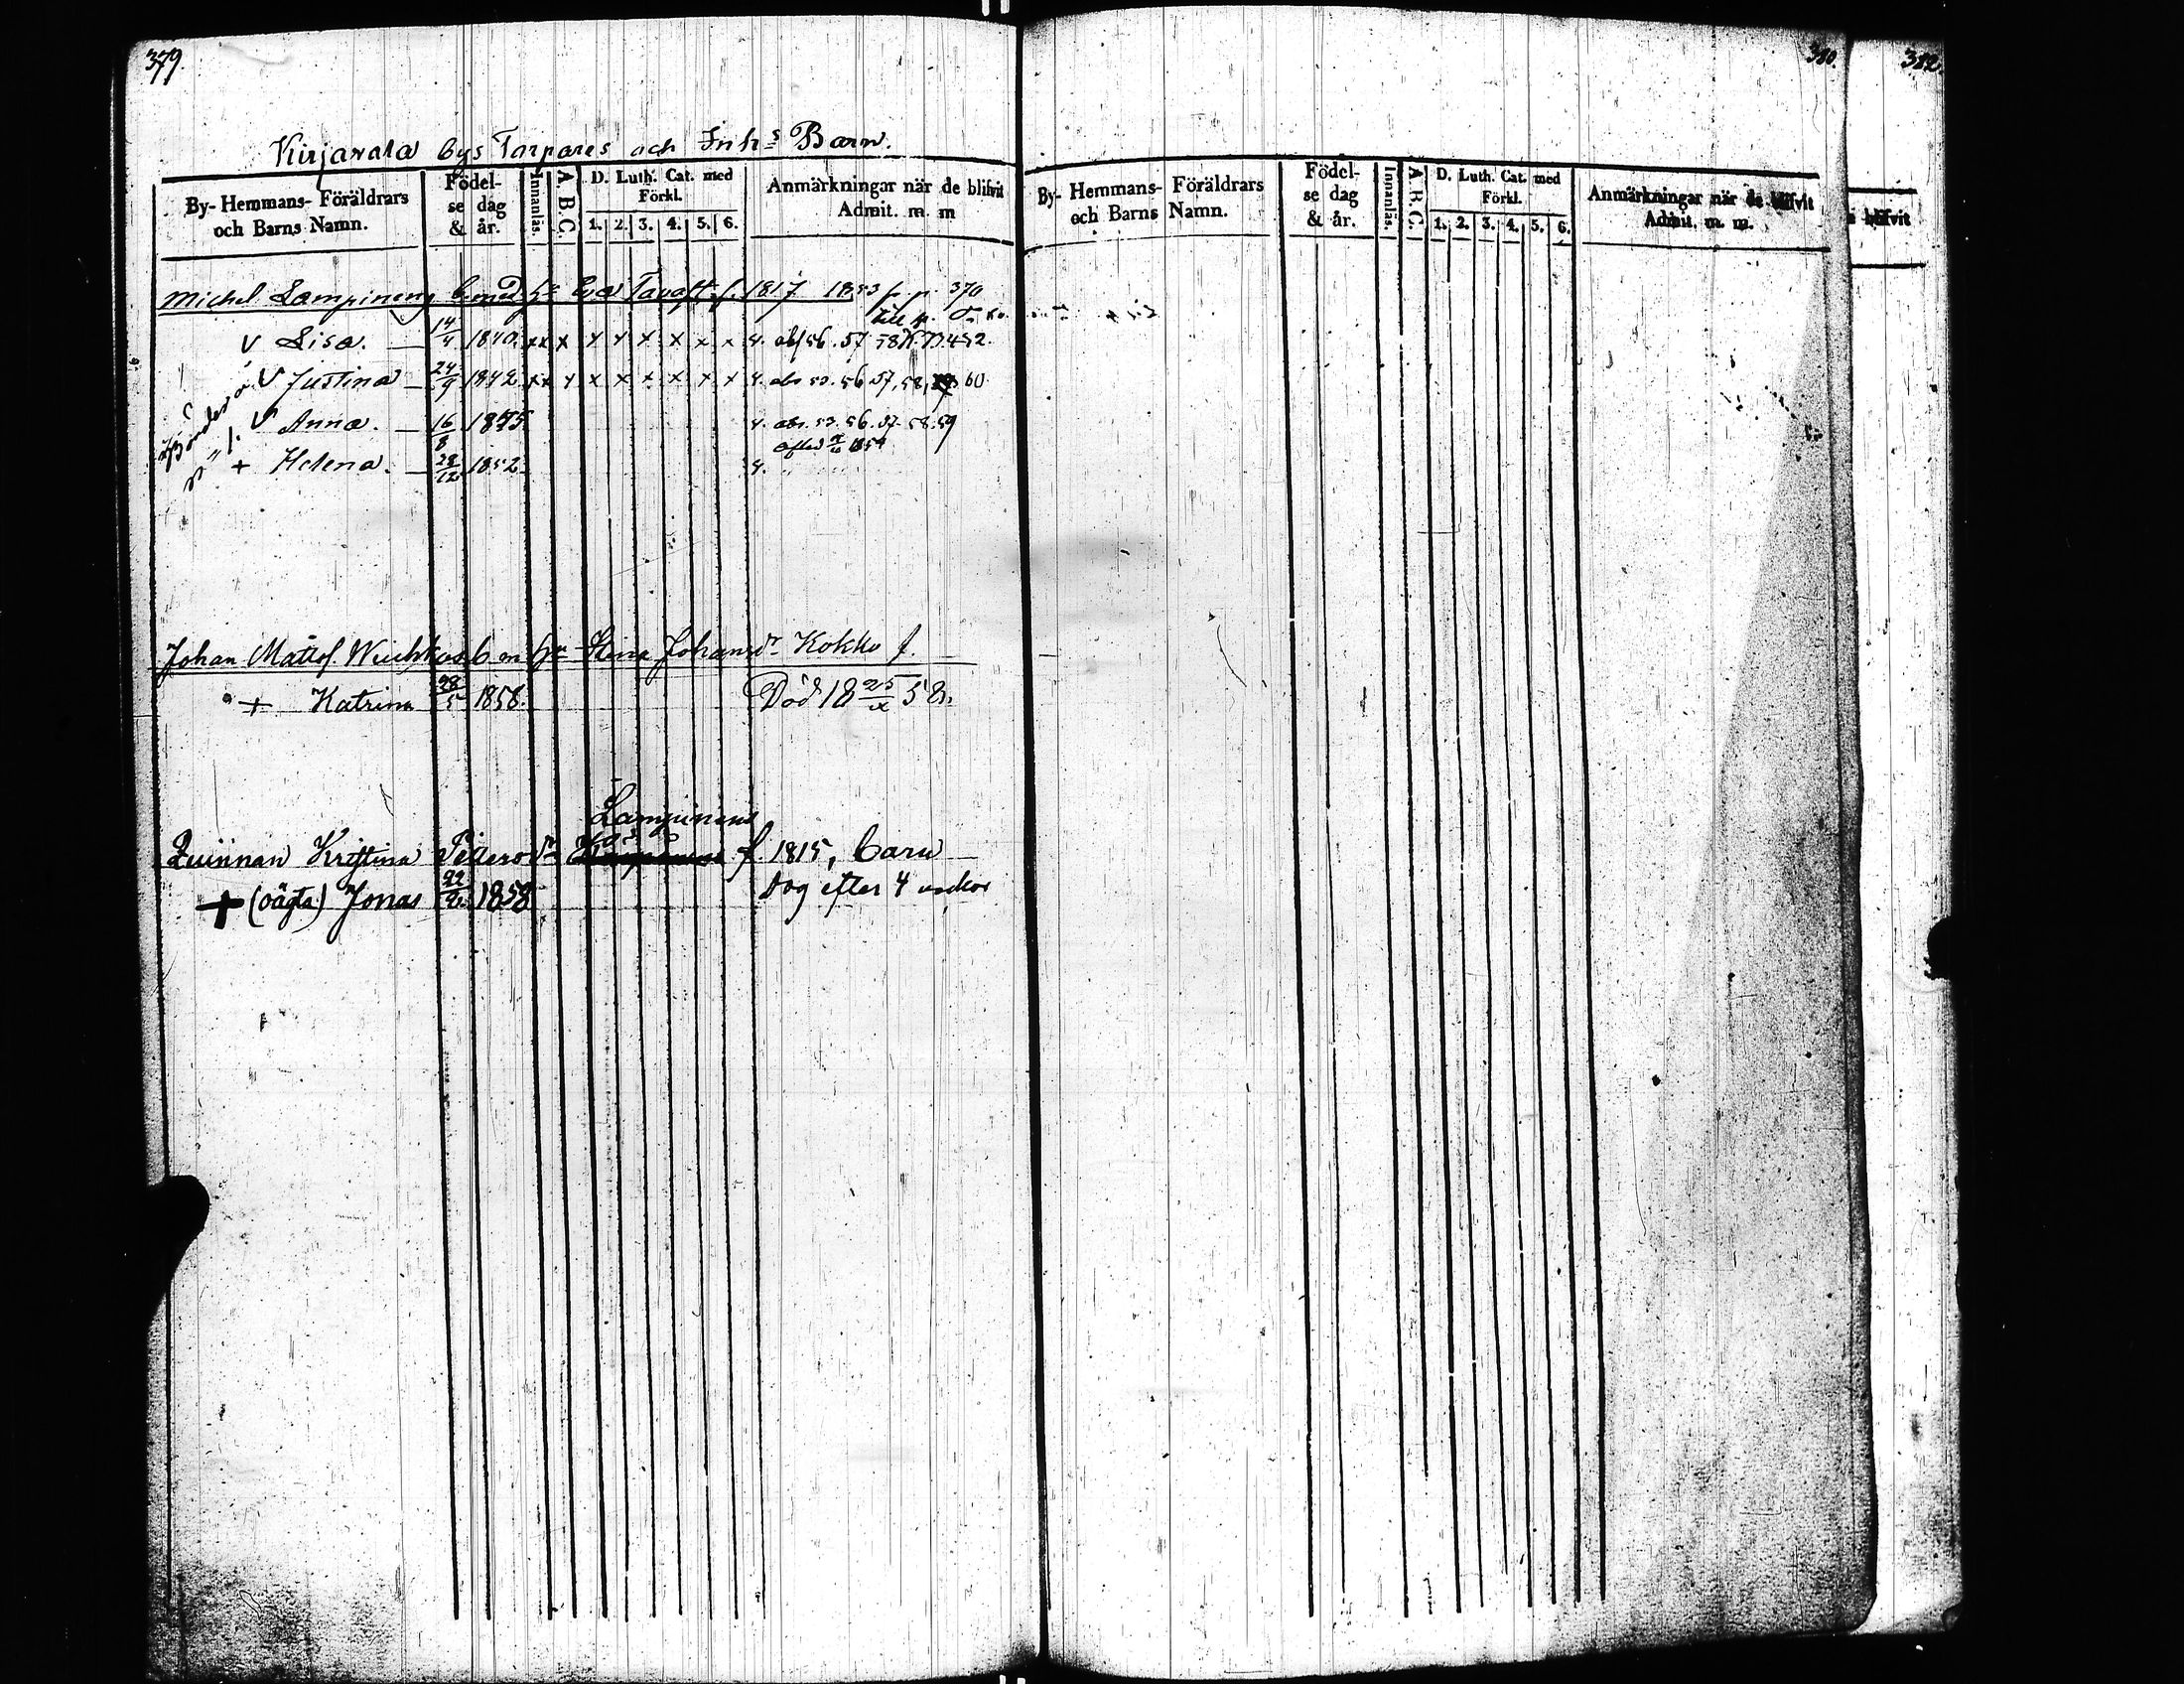 379.
Kirjavala bys Torpares och Inh:s Barn.
By- Hemmans- Föräldrars och Barns Namn.
Födelse dag & år.
Innanläs.
A. B. C.
D. Luth. Cat. med Förkl.
1. 2. 3. 4. 5. 6.
Anmärkningar när de blifvit Admit. m. m
Michel Lampinens b. med Eva Tavast f. 1817 1853 fr. p. 370
till p.
v Lisa. 14/4 1840. x x x x x x x x x 4. abs 56. 57 58 452.
v Justina 24/9 1842 x x x x x x x x x 4. abs 53. 56. 57, 58, 60
v Anna. 16/8 1845 4. abs. 53. 56. 57. 58. 59
+ Helena. 28/12 1852 4.
Johan Matts. b. m. Stina Johansdr Kokko f.
+ Katrina 28/5 1858. Död 18 25/x 58.
Lampinens
Quinnan Kristina Petersdr f. 1815, barn
+ (oägta) Jonas 22/2 1858 Dog efter 4 veckor
380.
By- Hemmans- Föräldrars och Barns Namn.
Födelse dag & år.
Innanläs.
A. B. C.
D. Luth. Cat. med Förkl.
1. 2. 3. 4. 5. 6.
Anmärkningar när de blifvit Admit. m. m.
382.
blifvit